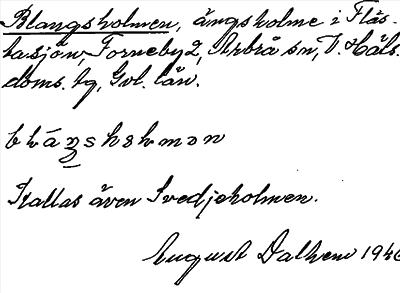 Blangsholmen, ängsholme i Fläs-
kasjön, Forneby 2, Arbrå sn, V. Häls.
doms. tg, Gvl. län.
Kallas även Svedjeholmen.
August Dalhem 1940